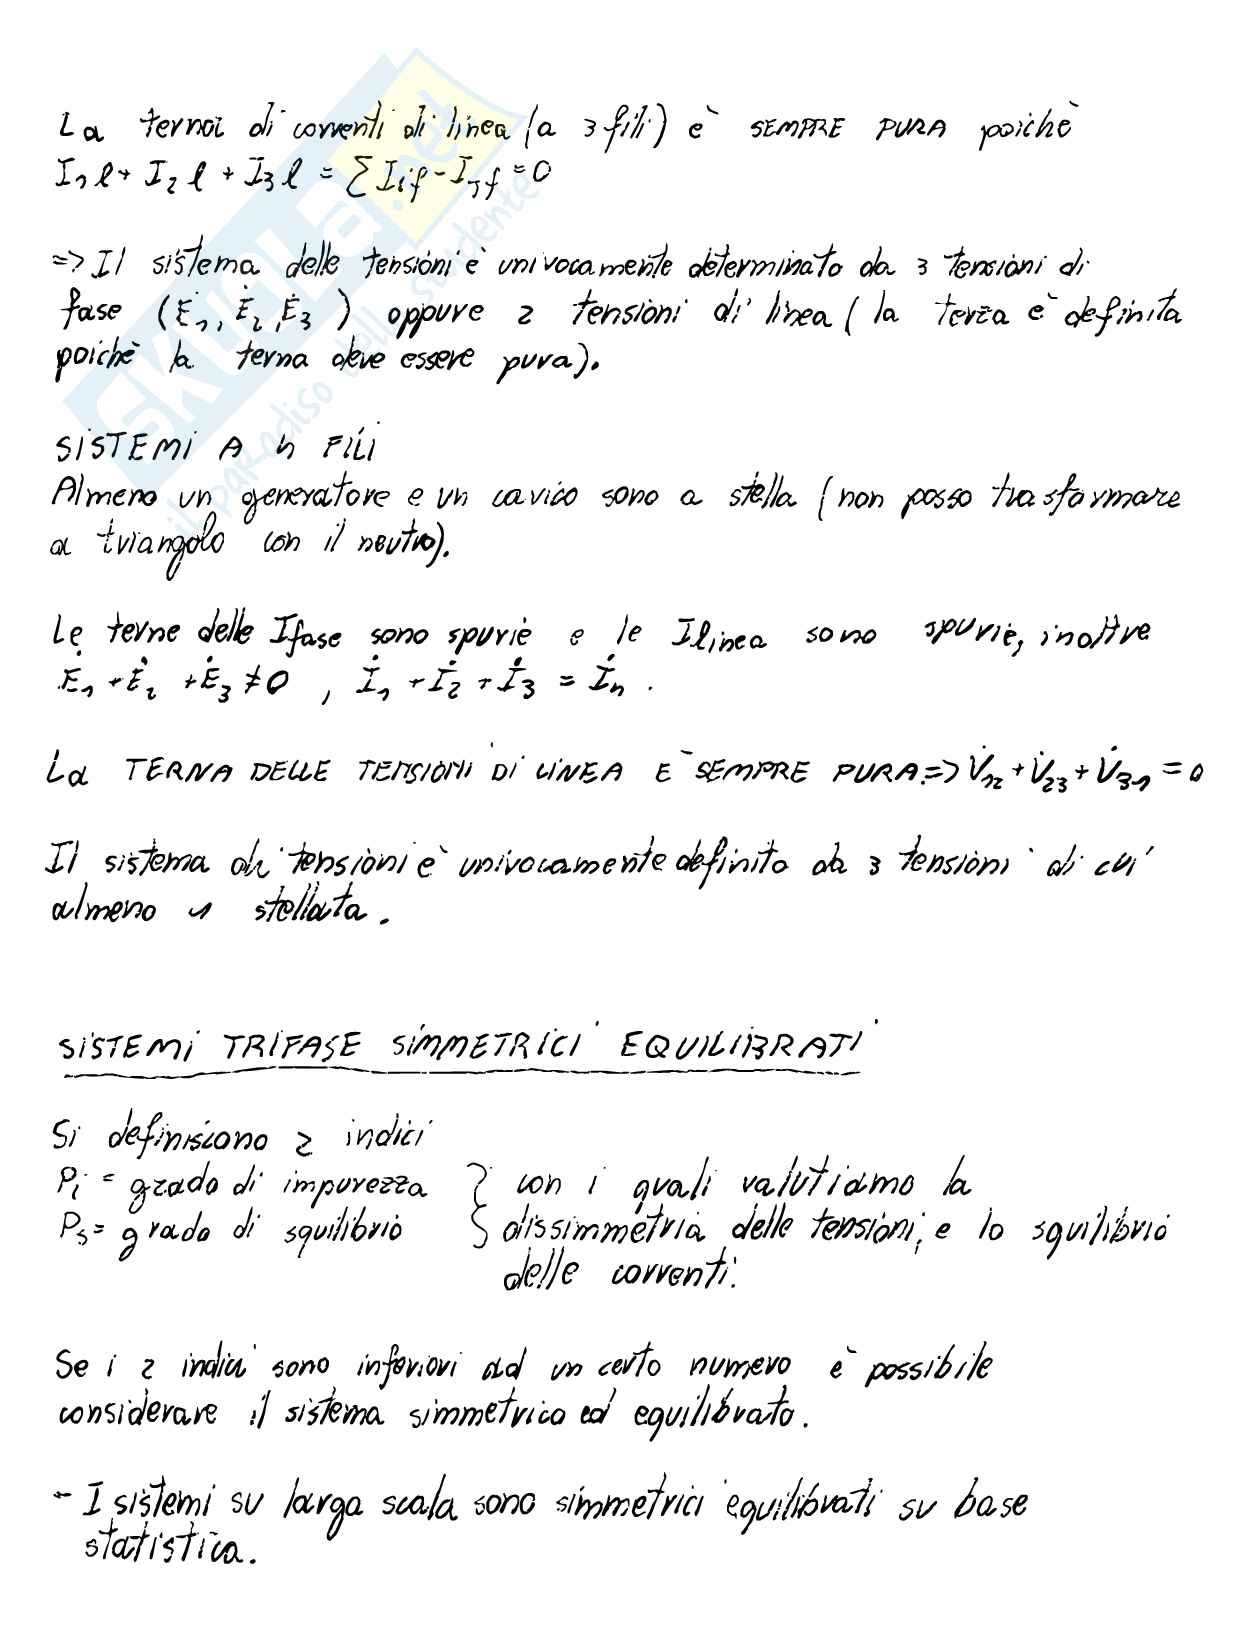 La terna di correnti di linea (a 3 fili) è SEMPRE PURA poichè
I1l + I2l + I3l = ∑ Iif - Ijf = 0
=> Il sistema delle tensioni è univocamente determinato da 3 tensioni di
fase (Ė1, Ė2, Ė3) oppure 2 tensioni di linea (la terza è definita
poichè la terna deve essere pura).
SISTEMI A 4 FILI
Almeno un generatore e un carico sono a stella (non posso trasformare
a triangolo con il neutro).
Le terne delle Ifase sono spurie e le Ilinea sono spurie, inoltre
Ė1 + Ė2 + Ė3 ≠ 0 , İ1 + İ2 + İ3 = İn .
La TERNA DELLE TENSIONI DI LINEA È SEMPRE PURA => V̇12 + V̇23 + V̇31 = 0
Il sistema di tensioni è univocamente definito da 3 tensioni di cui
almeno 1 stellata.
SISTEMI TRIFASE SIMMETRICI EQUILIBRATI
Si definiscono 2 indici
Pi = grado di impurezza } con i quali valutiamo la
Ps = grado di squilibrio dissimmetria delle tensioni, e lo squilibrio
delle correnti.
Se i 2 indici sono inferiori ad un certo numero è possibile
considerare il sistema simmetrico ed equilibrato.
- I sistemi su larga scala sono simmetrici equilibrati su base
statistica.
SKUOLA.net
il paradiso dello studente